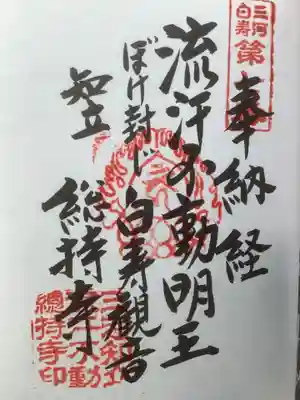 三河
白寿
第
奉納経
流汗不動明王
ぼけ封じ白寿観音
知立 総持寺
總持寺印